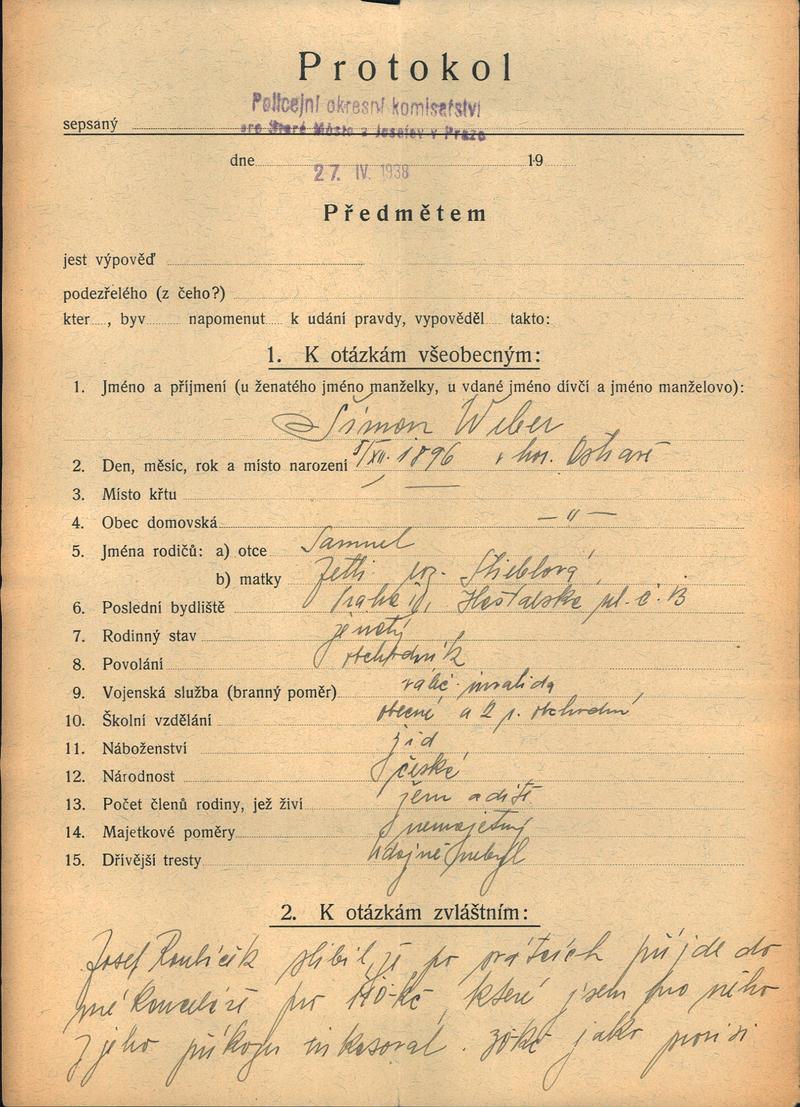 Protokol
Policejní okresní komisařství
sepsaný
pro Staré Město a Josefov v Praze
dne 19
27. IV. 1938
Předmětem
jest výpověď
podezřelého (z čeho?)
kter , byv napomenut k udání pravdy, vypověděl takto:
1. K otázkám všeobecným:
1. Jméno a příjmení (u ženatého jméno manželky, u vdané jméno dívčí a jméno manželovo):
Šimon Weber
2. Den, měsíc, rok a místo narození 5/XII. 1896 v Ostravě
3. Místo křtu —
4. Obec domovská — " —
5. Jména rodičů: a) otce Samuel
b) matky roz. Stieblová
6. Poslední bydliště Praha Haštalské č. 13
7. Rodinný stav ženatý
8. Povolání obchodník
9. Vojenská služba (branný poměr) váleč. invalida
10. Školní vzdělání obecné a 2 r. obchodní
11. Náboženství žid
12. Národnost česká
13. Počet členů rodiny, jež živí
14. Majetkové poměry nemajetný
15. Dřívější tresty údajně nebyl
2. K otázkám zvláštním:
Josef Roubíček slíbil, že po svátcích přijde do
mé kanceláře pro 110 Kč, které jsem pro něho
z jeho příkazu inkasoval. jako provisi